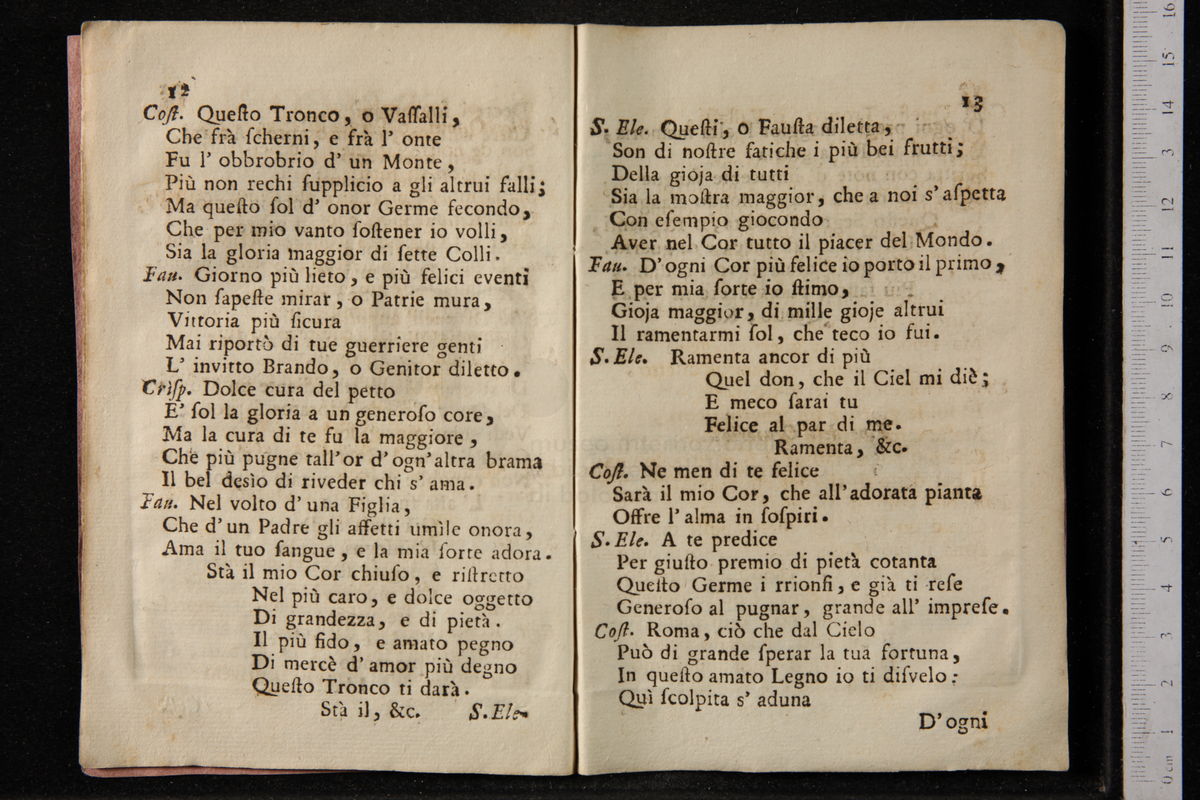 12
Coſt. Queſto Tronco, o Vaſſalli,
Che frà ſcherni, e frà l' onte
Fu l' obbrobrio d' un Monte,
Più non rechi ſupplicio a gli altrui falli;
Ma queſto ſol d' onor Germe fecondo,
Che per mio vanto ſoſtener io volli,
Sia la gloria maggior di ſette Colli.
Fau. Giorno più lieto, e più felici eventi
Non ſapeſte mirar, o Patrie mura,
Vittoria più ſicura
Mai riportò di tue guerriere genti
L' invitto Brando, o Genitor diletto.
Criſp. Dolce cura del petto
E' ſol la gloria a un generoſo core,
Ma la cura di te fu la maggiore,
Che più pugne tall'or d'ogn'altra brama
Il bel desìo di riveder chi s' ama.
Fau. Nel volto d' una Figlia,
Che d' un Padre gli affetti umìle onora,
Ama il tuo ſangue, e la mia ſorte adora.
Stà il mio Cor chiuſo, e riſtretto
Nel più caro, e dolce oggetto
Di grandezza, e di pietà.
Il più fido, e amato pegno
Di mercè d' amor più degno
Queſto Tronco ti darà.
Stà il, &c.
S. Ele.
13
S. Ele. Queſti, o Fauſta diletta,
Son di noſtre fatiche i più bei frutti;
Della gioja di tutti
Sia la moſtra maggior, che a noi s' aſpetta
Con eſempio giocondo
Aver nel Cor tutto il piacer del Mondo.
Fau. D'ogni Cor più felice io porto il primo,
E per mia ſorte io ſtimo,
Gioja maggior, di mille gioje altrui
Il ramentarmi ſol, che teco io fui.
S. Ele. Ramenta ancor di più
Quel don, che il Ciel mi diè;
E meco ſarai tu
Felice al par di me.
Ramenta, &c.
Coſt. Ne men di te felice
Sarà il mio Cor, che all'adorata pianta
Offre l' alma in ſoſpiri.
S. Ele. A te predice
Per giuſto premio di pietà cotanta
Queſto Germe i rrionfi, e già ti reſe
Generoſo al pugnar, grande all' impreſe.
Coſt. Roma, ciò che dal Cielo
Può di grande ſperar la tua fortuna,
In queſto amato Legno io ti diſvelo:
Quì ſcolpita s' aduna
D' ogni
0 cm 1 2 3 4 5 6 7 8 9 10 11 12 3 14 15 16